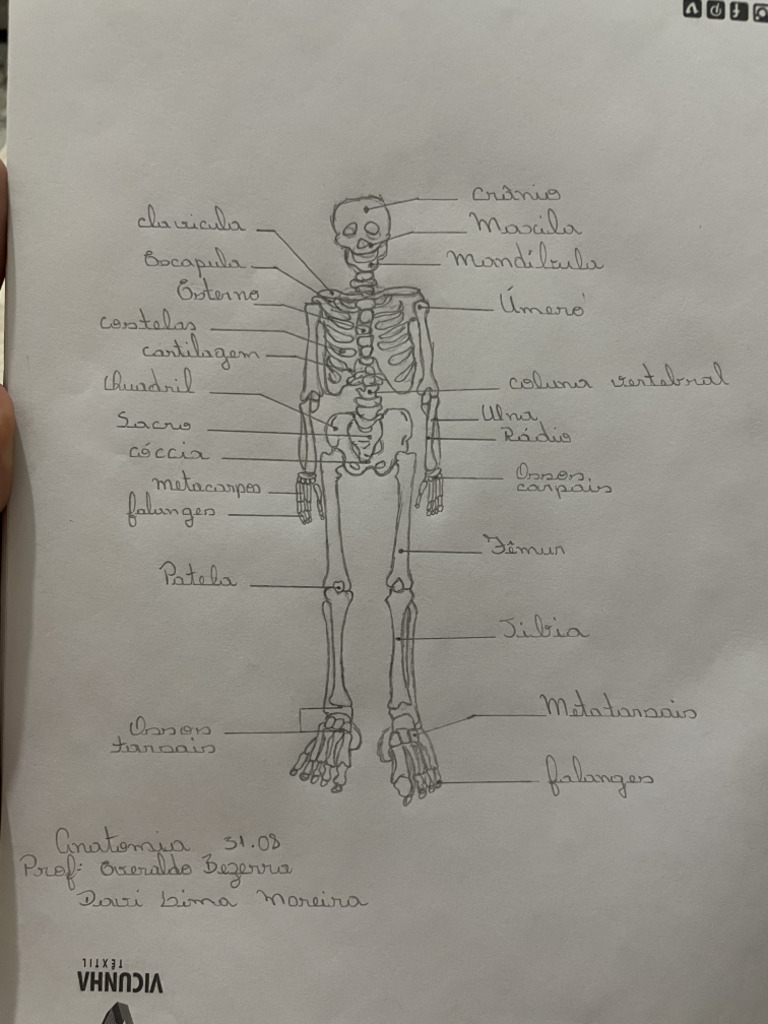 Crânio
Maxila
Mandíbula
Úmero
coluna vertebral
Ulna
Rádio
Ossos
carpais
Fêmur
Tibia
Metatarsais
falanges
clavicula
Escapula
Esterno
costelas
cartilagem
Quadril
Sacro
cóccix
metacarpos
falanges
Patela
Ossos
tarsais
Anatomia 31.08
Prof: Everaldo Bezerra
Davi Lima Moreira
VICUNHA
TÊXTIL